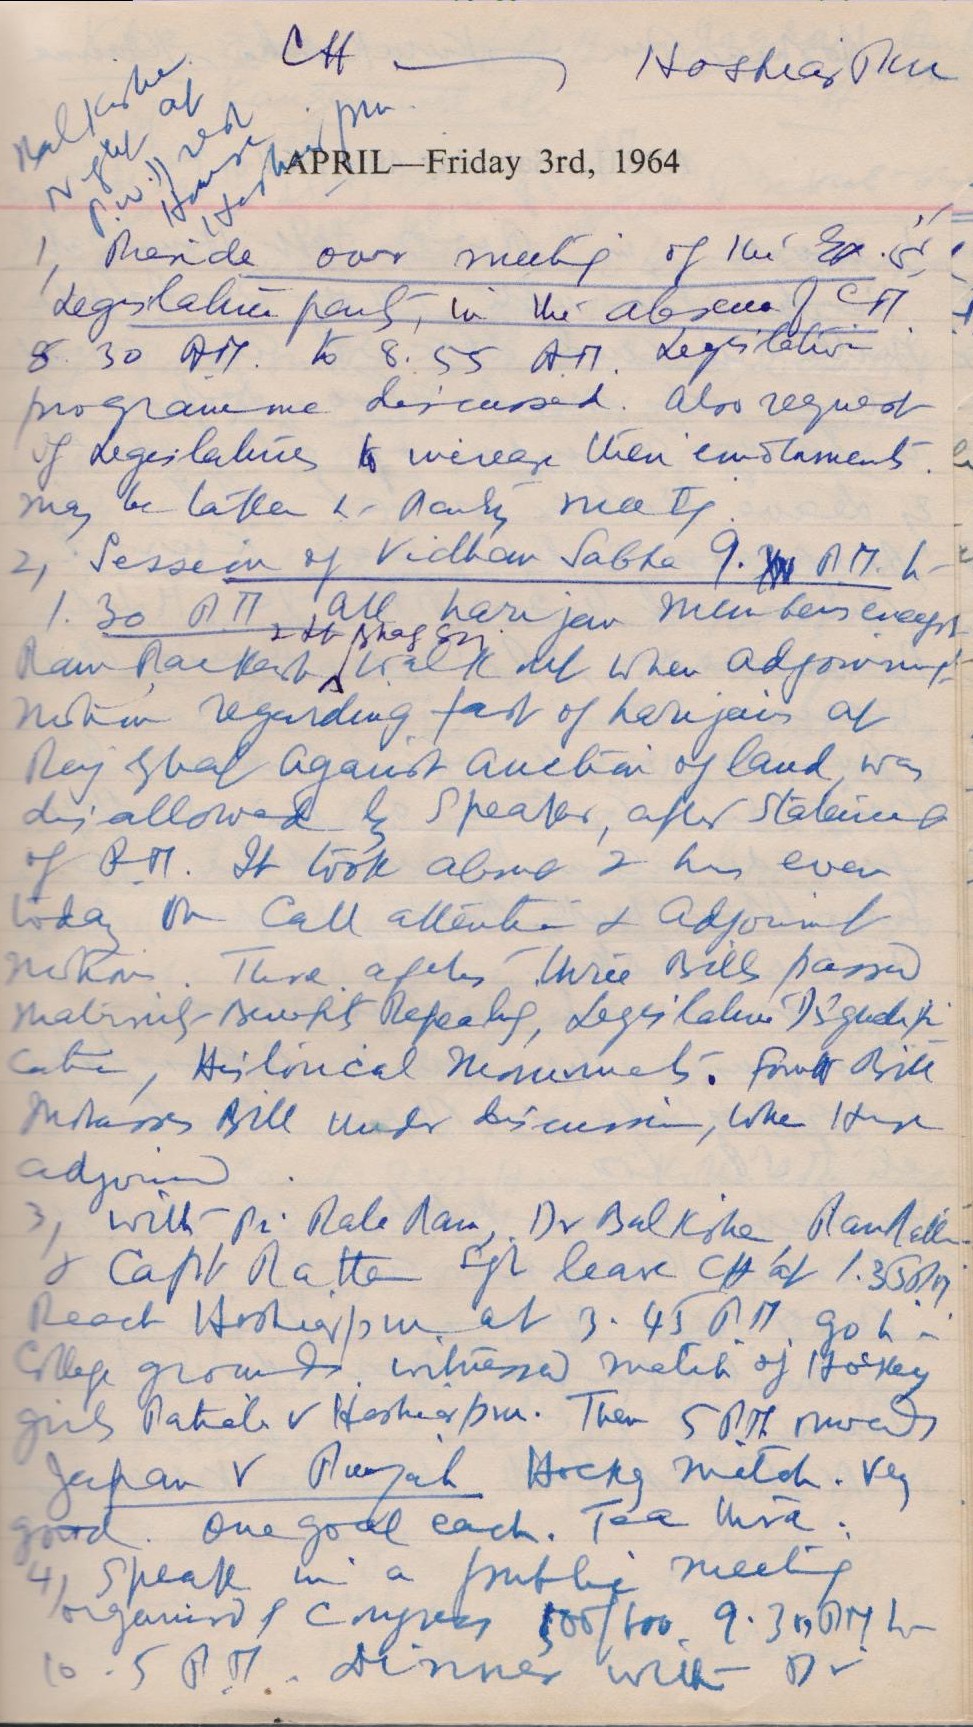 CH — Hoshiarpur
Balkishan
night at
P.W.D rest
House
Hoshiarpur.
APRIL—Friday 3rd, 1964
1, Preside over meeting of the Ex.
Legislative party, in the absence of CM
8.30 AM. to 8.55 AM. Legislation
programme discussed. Also request
of Legislatures to increase their emoluments.
may be taken in Party meetg.
2, Session of Vidhan Sabha 9. AM. to
1.30 PM. All harijan members except
& St Bhag Sn.
Ram Parkash walk out when adjournmt
motion regarding fast of harijans at
Raj Ghat against auction of land, was
disallowed by Speaker, after Statement
of R.M. It took about 2 hrs even
today on Call attention & adjournmt
motions. There after three Bills passed
Maternity Benefits Repealing, Legislature Disqualifi
cation, Historical Monuments. Fourth Bill
Molasses Bill under discussion, when House
adjourned.
3, With Pt. Rala Ram, Dr Balkishan, Ram Rattan
& Capt Rattan Sgh leave CH at 1.35 PM
Reach Hoshiarpur at 3.45 PM, go to
College grounds, witnessed match of Hockey
girls Patiala v Hoshiarpur. Then 5 PM onwards
Japan v Punjab Hockey match. Very
good. One goal each. Tea there.
4, Speak in a public meeting
organised by Congress 500/600. 9.30 PM to
10.5 PM. Dinner with Dr